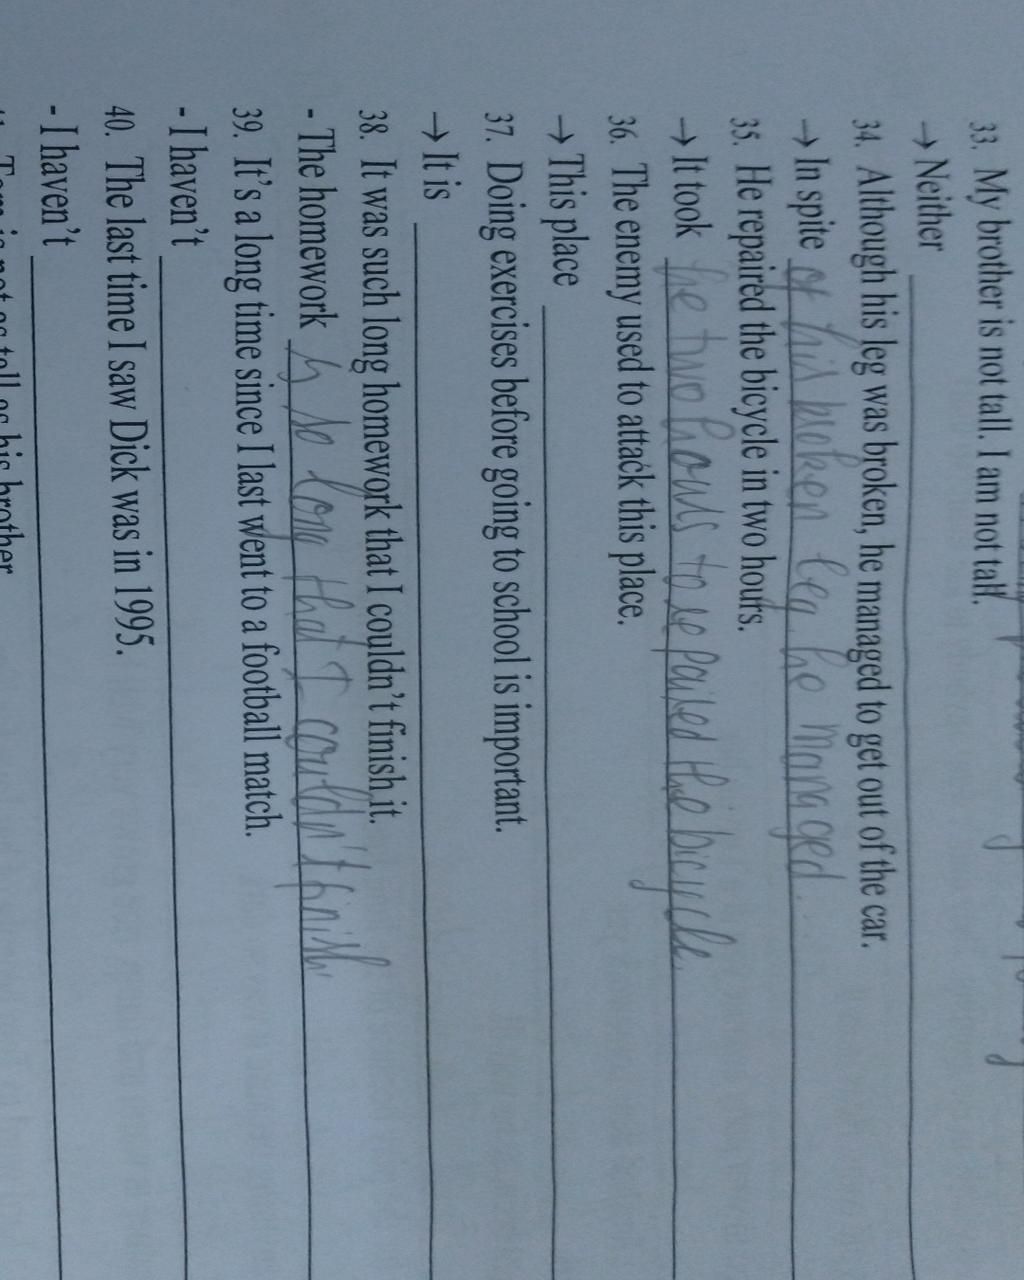 33. My brother is not tall. I am not tall.
→ Neither
34. Although his leg was broken, he managed to get out of the car.
→ In spite of his broken leg, he managed...
35. He repaired the bicycle in two hours.
→ It took he two hours to repaired the bicycle.
36. The enemy used to attack this place.
→ This place
37. Doing exercises before going to school is important.
→ It is
38. It was such long homework that I couldn't finish it.
- The homework is so long that I couldn't finish
39. It's a long time since I last went to a football match.
- I haven't
40. The last time I saw Dick was in 1995.
- I haven't
41. Tom is not as tall as his brother